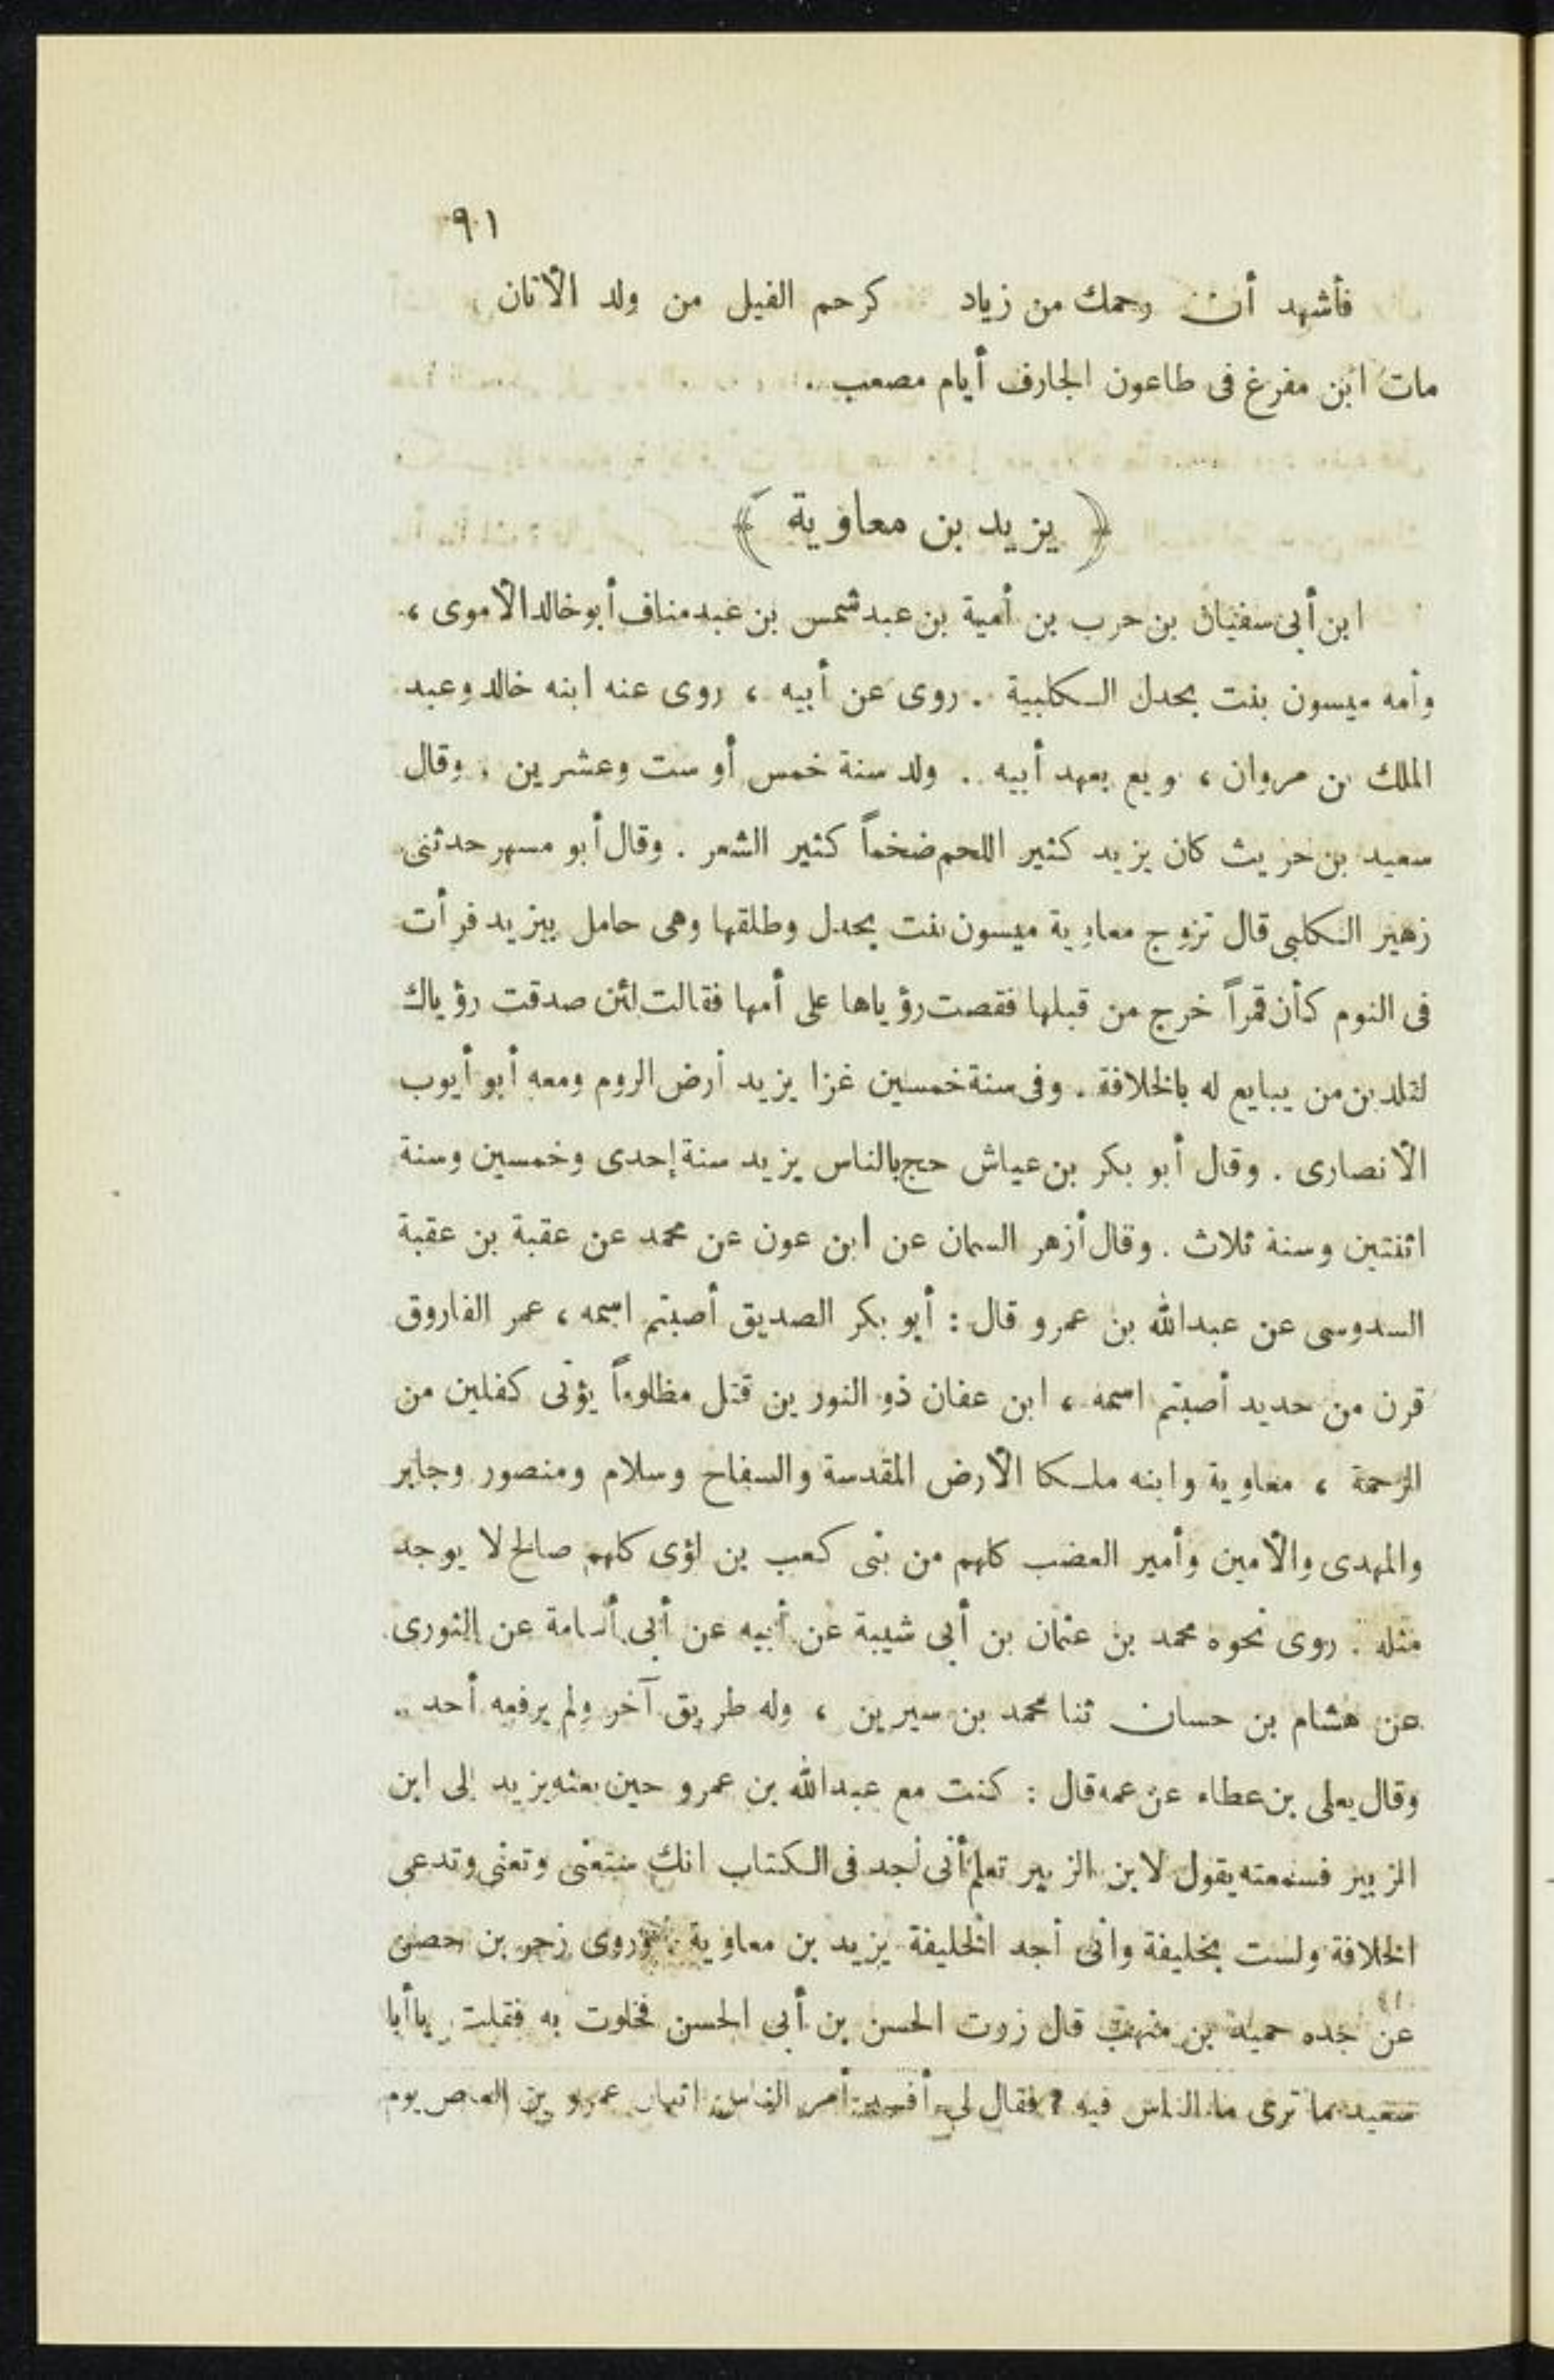 ٩١
فأشهد أن رحمك من زياد كرحم الفيل من ولد الأتان
مات ابن مفرغ فى طاعون الجارف أيام مصعب .
﴿ يزيد بن معاوية ﴾
ابن أبى سفيان بن حرب بن أمية بن عبد شمس بن عبد مناف أبو خالد الأموى ،
وأمه ميسون بنت بحدل الكلبية . روى عن أبيه ، روى عنه ابنه خالد وعبد
الملك بن مروان ، وبع بعهد أبيه . ولد سنة خمس أو ست وعشرين . وقال
سعيد بن حريث كان يزيد كثير اللحم ضخماً كثير الشعر . وقال أبو مسهر حدثنى
زهير الكلبى قال تزوج معاوية ميسون بنت بحدل وطلقها وهى حامل بيزيد فرأت
فى النوم كأن قمراً خرج من قبلها فقصت رؤياها على أمها فقالت لئن صدقت رؤياك
لتلدن من يبايع له بالخلافة . وفى سنة خمسين غزا يزيد أرض الروم ومعه أبو أيوب
الأنصارى . وقال أبو بكر بن عياش حج بالناس يزيد سنة إحدى وخمسين وسنة
اثنتين وسنة ثلاث . وقال أزهر السمان عن ابن عون عن محمد عن عقبة بن عقبة
السدوسى عن عبدالله بن عمرو قال : أبو بكر الصديق أصبتم اسمه ، عمر الفاروق
قرن من حديد أصبتم اسمه ، ابن عفان ذو النورين قتل مظلوماً يؤتى كفلين من
الرحمة ، معاوية وابنه ملكا الأرض المقدسة والسفاح وسلام ومنصور وجابر
والمهدى والأمين وأمير العضب كلهم من بنى كعب بن لؤى كلهم صالح لا يوجد
مثله . روى نحوه محمد بن عثمان بن أبى شيبة عن أبيه عن أبى أسامة عن الثورى
عن هشام بن حسان ثنا محمد بن سيرين ، وله طريق آخر ولم يرفعه أحد ..
وقال يعلى بن عطاء عن عمه قال : كنت مع عبدالله بن عمرو حين بعثه يزيد إلى ابن
الزبير فسمعته يقول لابن الزبير تعلم أنى أجد فى الكتاب انك ستعنى وتعنى وتدعى
الخلافة ولست بخليفة وانى أجد الخليفة يزيد بن معاوية . وروى زحر بن حصن
عن جده حميد بن منهب قال زرت الحسن بن أبى الحسن فخلوت به فقلت يا أبا
سعيد ما ترى ما الناس فيه ؟ فقال لى أفسد أمر الناس اثنان عمرو بن العاص يوم